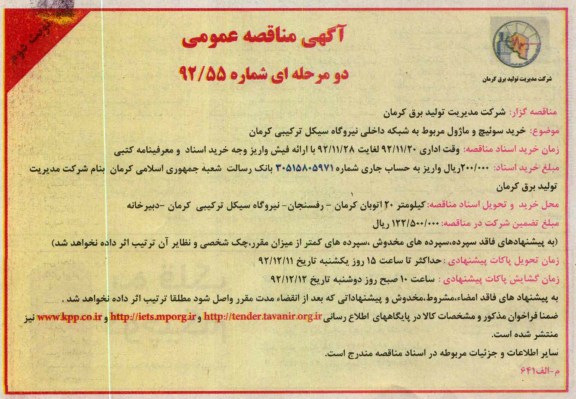 نوبت دوم
آگهی مناقصه عمومی
دو مرحله ای شماره ۹۲/۵۵
شرکت مدیریت تولید برق کرمان
مناقصه گزار: شرکت مدیریت تولید برق کرمان
موضوع: خرید سوئیچ و ماژول مربوط به شبکه داخلی نیروگاه سیکل ترکیبی کرمان
زمان خرید اسناد مناقصه: وقت اداری ۹۲/۱۱/۲۰ لغایت ۹۲/۱۱/۲۸ با ارائه فیش واریز وجه خرید اسناد و معرفینامه کتبی
مبلغ خرید اسناد: ۲۰۰/۰۰۰ریال واریز به حساب جاری شماره ۳۰۵۱۵۸۰۵۹۷۱ بانک رسالت شعبه جمهوری اسلامی کرمان بنام شرکت مدیریت
تولید برق کرمان
محل خرید و تحویل اسناد مناقصه:کیلومتر ۲۰ اتوبان کرمان - رفسنجان- نیروگاه سیکل ترکیبی کرمان -دبیرخانه
مبلغ تضمین شرکت در مناقصه: ۱۲۲/۵۰۰/۰۰۰ ریال
(به پیشنهادهای فاقد سپرده،سپرده های مخدوش ،سپرده های کمتر از میزان مقرر،چک شخصی و نظایر آن ترتیب اثر داده نخواهد شد)
زمان تحویل پاکات پیشنهادی :حداکثر تا ساعت ۱۵ روز یکشنبه تاریخ ۹۲/۱۲/۱۱
زمان گشایش پاکات پیشنهادی : ساعت ۱۰ صبح روز دوشنبه تاریخ ۹۲/۱۲/۱۲
به پیشنهاد های فاقد امضاء،مشروط،مخدوش و پیشنهاداتی که بعد از انقضاء مدت مقرر واصل شود مطلقا ترتیب اثر داده نخواهد شد .
ضمنا فراخوان مذکور و مشخصات کالا در پایگاههای اطلاع رسانی http://tender.tavanir.org.ir و http://iets.mporg.ir و www.kpp.co.ir نیز
منتشر شده است.
سایر اطلاعات و جزئیات مربوطه در اسناد مناقصه مندرج است.
م-الف۶۴۱